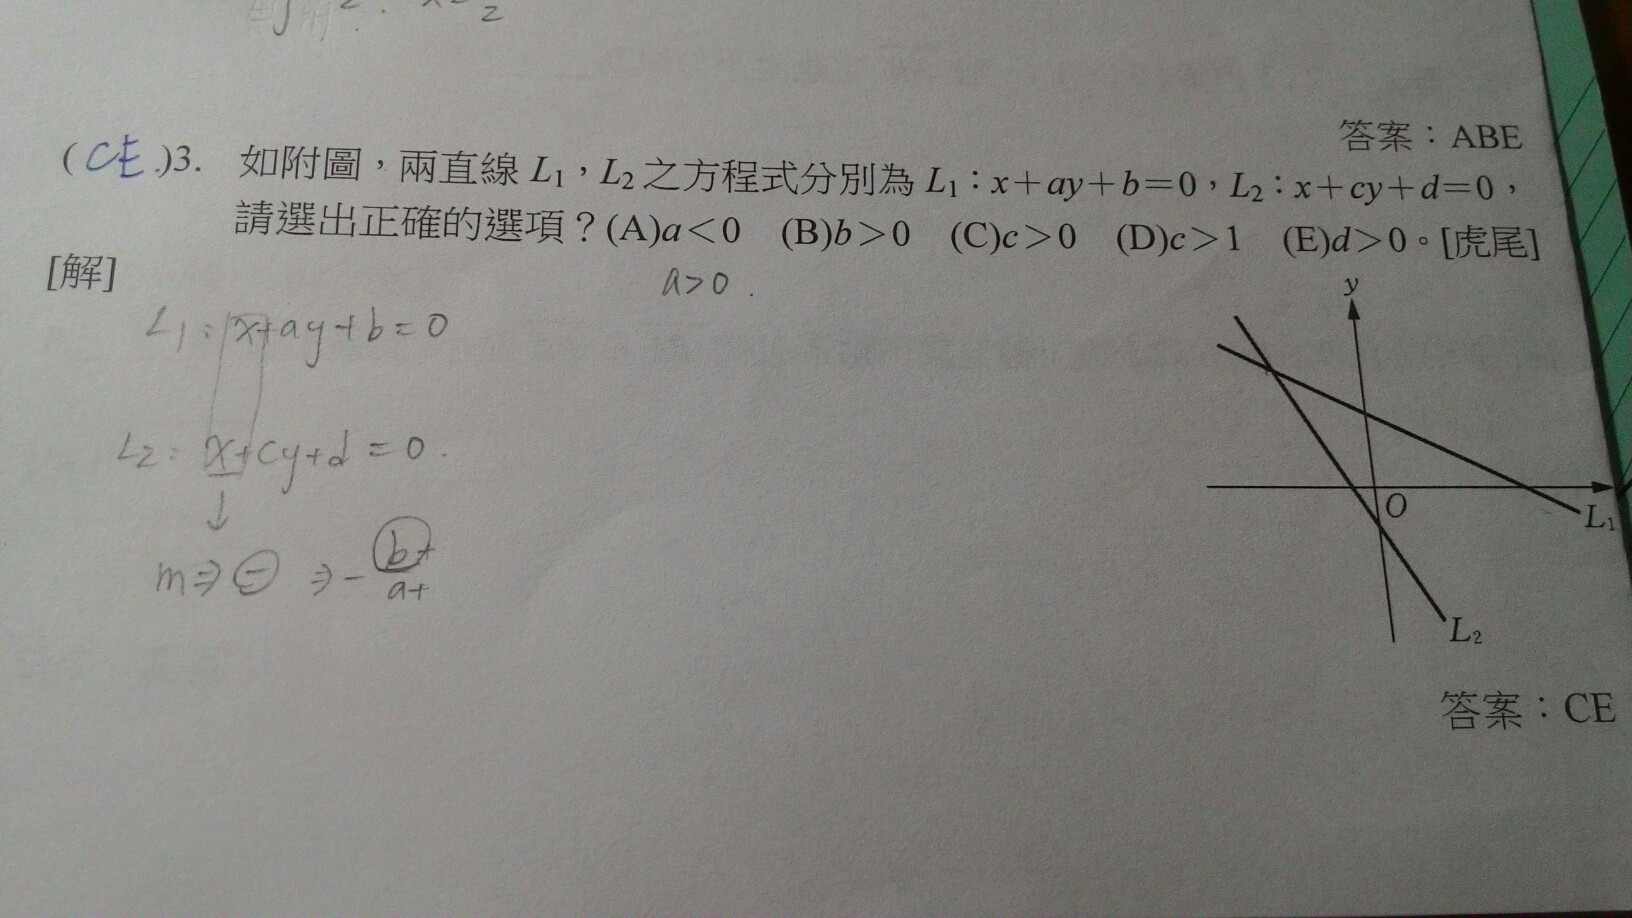 答案：ABE
(CE.)3. 如附圖，兩直線 L₁，L₂ 之方程式分別為 L₁：x＋ay＋b＝0，L₂：x＋cy＋d＝0，
請選出正確的選項？(A)a＜0 (B)b＞0 (C)c＞0 (D)c＞1 (E)d＞0。[虎尾]
[解]
a>0.
L₁: x+ay+b=0
L₂: x+cy+d=0.
↓
m⇒⊖ ⇒ - b+/a+
y
O
L₁
L₂
答案：CE